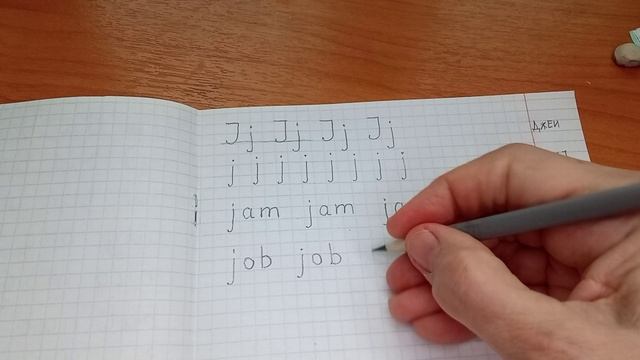 Jj Jj Jj Jj
j j j j j j j j
jam jam ja
job job
ДЖЕЙ